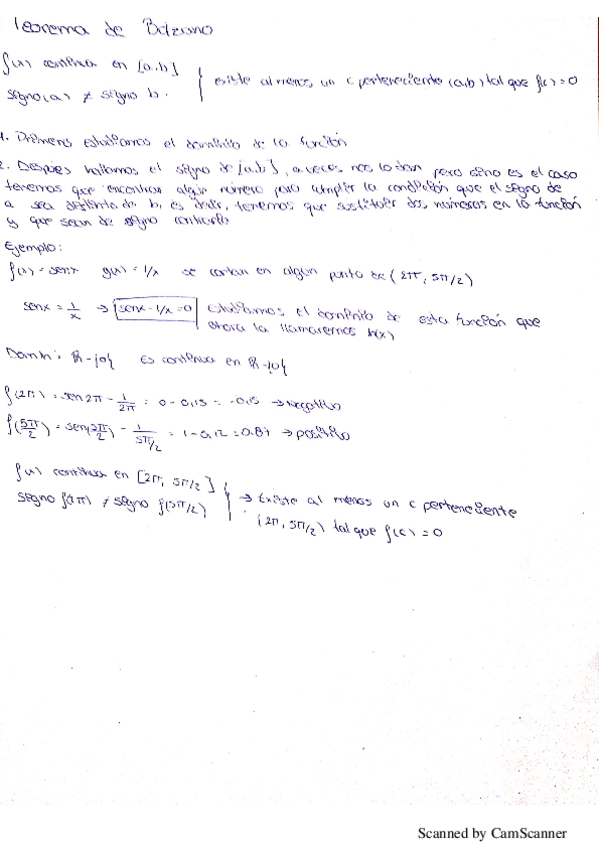 Teorema de Bolzano
f(x) continua en [a,b]
signo(a) ≠ signo b.
existe al menos un c perteneciente (a,b) tal que f(c)=0
1. Primero estudiamos el dominio de la función
2. Despues hallamos el signo de [a,b], a veces nos lo dan, pero sino es el caso
tenemos que encontrar algún número para cumplir la condición que el signo de
a sea distinto de b, es decir, tenemos que sustituir dos números en la función
y que sean de signo contrario
Ejemplo:
f(x) = senx g(x) = 1/x se cortan en algún punto de (2π, 5π/2)
senx = 1/x → senx - 1/x = 0 Estudiamos el dominio de esta función que
ahora la llamaremos h(x)
Domh: R-{0} es continua en R-{0}
f(2π) = sen 2π - 1/2π = 0 - 0,15 = -0,15 → negativo
f(5π/2) = sen(5π/2) - 1/5π/2 = 1 - 0,12 = 0,87 → positivo
f(x) continua en [2π, 5π/2]
signo f(2π) ≠ signo f(5π/2)
→ Existe al menos un c perteneciente
(2π, 5π/2) tal que f(c) = 0
Scanned by CamScanner